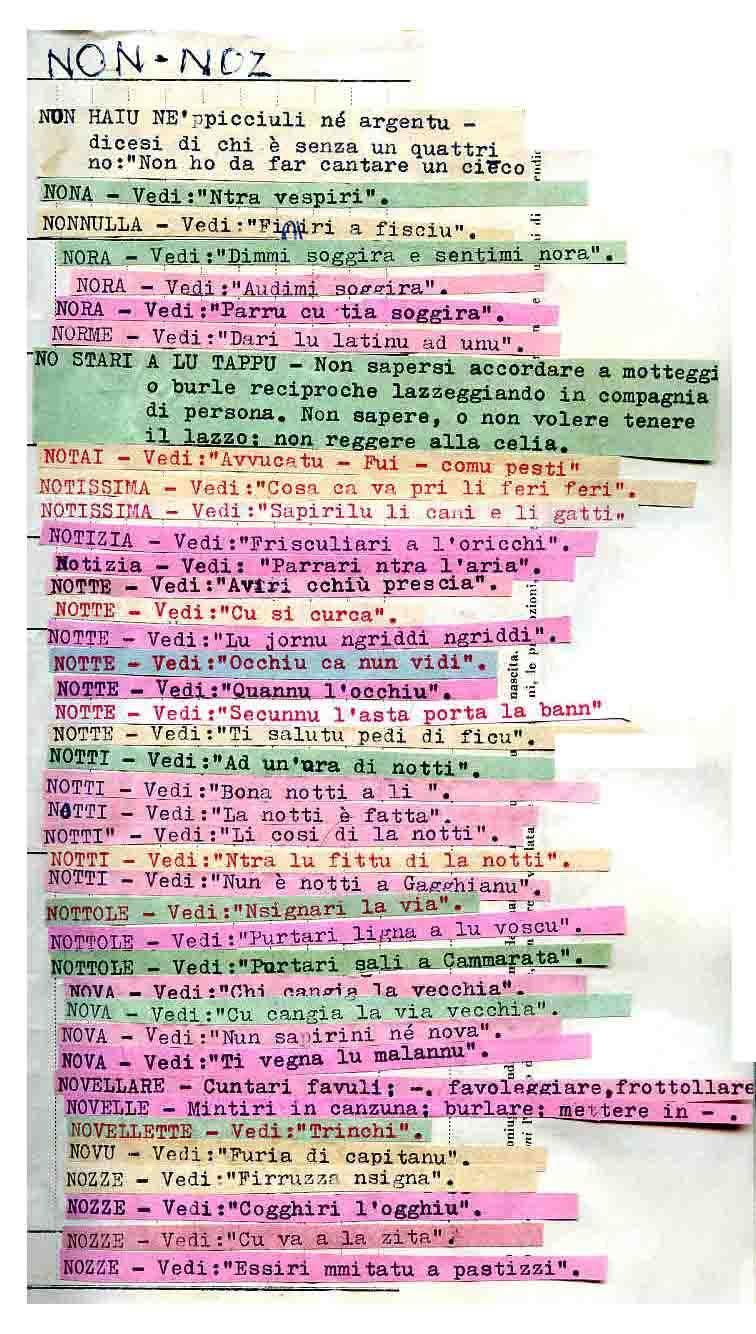 NON - NOZ
NON HAIU NE'ppicciuli né argentu -
dicesi di chi è senza un quattri
no:"Non ho da far cantare un cieco
NONA - Vedi:"Ntra vespiri".
NONNULLA - Vedi:"Finiri a fisciu".
NORA - Vedi:"Dimmi soggira e sentimi nora".
NORA - Vedi:"Audimi soggira".
NORA - Vedi:"Parru cu tia soggira".
NORME - Vedi:"Dari lu latinu ad unu".
NO STARI A LU TAPPU - Non sapersi accordare a motteggi
o burle reciproche lazzeggiando in compagnia
di persona. Non sapere, o non volere tenere
il lazzo; non reggere alla celia.
NOTAI - Vedi:"Avvucatu - Fui - comu pesti"
NOTISSIMA - Vedi:"Cosa ca va pri li feri feri".
NOTISSIMA - Vedi:"Sapirilu li cani e li gatti"
NOTIZIA - Vedi:"Frisculiari a l'oricchi".
Notizia - Vedi: "Parrari ntra l'aria".
NOTTE - Vedi:"Aviri cchiù prescia".
NOTTE - Vedi:"Cu si curca".
NOTTE - Vedi:"Lu jornu ngriddi ngriddi".
NOTTE - Vedi:"Occhiu ca nun vidi".
NOTTE - Vedi:"Quannu l'occhiu".
NOTTE - Vedi:"Secunnu l'asta porta la bann"
NOTTE - Vedi:"Ti salutu pedi di ficu".
NOTTI - Vedi:"Ad un'ura di notti".
NOTTI - Vedi:"Bona notti a li ".
NOTTI - Vedi:"La notti è fatta".
NOTTI" - Vedi:"Li cosi di la notti".
NOTTI - Vedi:"Ntra lu fittu di la notti".
NOTTI - Vedi:"Nun è notti a Gagghianu".
NOTTOLE - Vedi:"Nsignari la via".
NOTTOLE - Vedi:"Purtari ligna a lu voscu".
NOTTOLE - Vedi:"Purtari sali a Cammarata".
NOVA - Vedi:"Chi cangia la vecchia".
NOVA - Vedi:"Cu cangia la via vecchia".
NOVA - Vedi:"Nun sapirini né nova".
NOVA - Vedi:"Ti vegna lu malannu".
NOVELLARE - Cuntari favuli; -. favoleggiare,frottollare
NOVELLE - Mintiri in canzuna; burlare; mettere in - .
NOVELLETTE - Vedi:"Trinchi".
NOVU - Vedi:"Furia di capitanu".
NOZZE - Vedi:"Firruzza nsigna".
NOZZE - Vedi:"Cogghiri l'ogghiu".
NOZZE - Vedi:"Cu va a la zita".
NOZZE - Vedi:"Essiri mmitatu a pastizzi".
nascita.